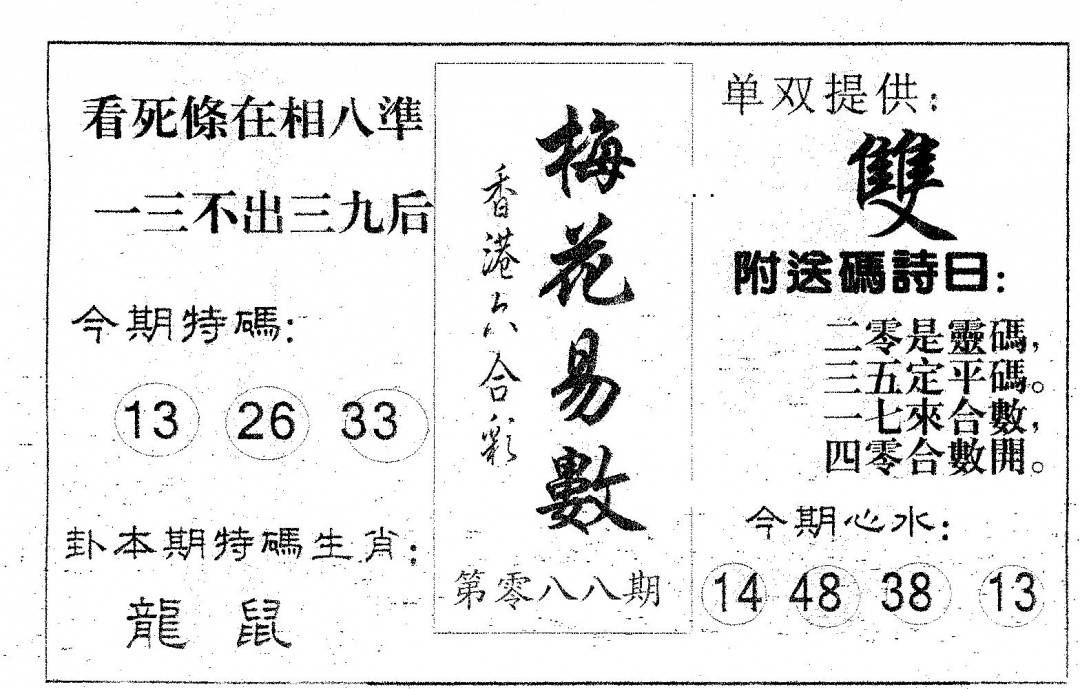 看死條在相八準
一三不出三九后
今期特碼:
13 26 33
卦本期特碼生肖:
龍 鼠
梅花易數
香港六合彩
第零八八期
单双提供:
雙
附送碼詩曰:
二零是靈碼,
三五定平碼。
一七來合數,
四零合數開。
今期心水:
14 48 38 13